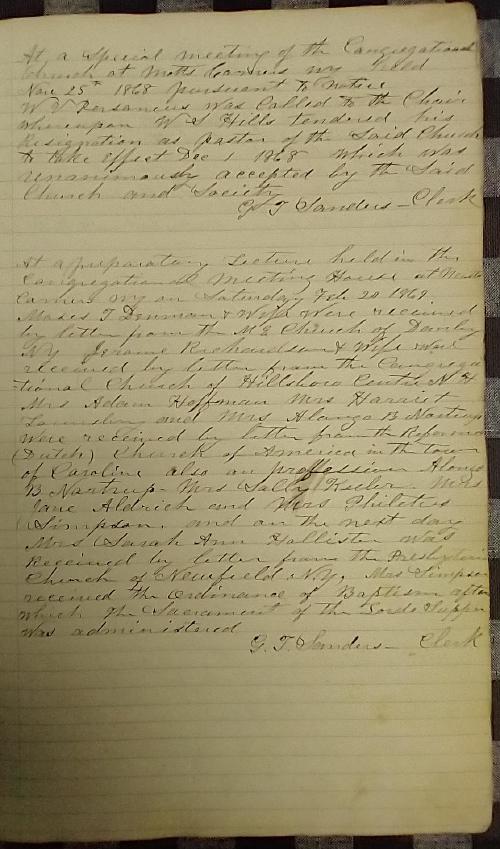 At a Special meeting of the Congregational
Church at Motts Corners NY held
Nov 25th 1868 pursuant to notice
W V Personius was Called to the Chair
whereupon W S Hills tendered his
Resignation as pastor of the Said Church
to take effect Dec 1 1868 which was
unanimously accepted by the Said
Church and Society
G T Sanders - Clerk
At a preparatory Lecture held in the
Congregational Meeting House at Motts
Corners NY on Saturday Feb 20 1869
Moses T Denman & Wife Were received
by letter from the M E Church of Danby
NY Jerome Richardson & Wife were
received by letter from the Congrega
tional Church of Hillsboro Centre N H
Mrs Adam Hoffman Mrs Harriet
and Mrs Alonzo B Nortrup
were received by letter from the Reformed
(Dutch) Church of America in the town
of Caroline also on profession Alonzo
B Nortrup - Mrs Sally Keeler. Mrs
Jane Aldrich and Mrs Philetus
Simpson. and on the next day
Mrs Sarah Ann Hollister was
Received by letter from the Presbyterian
Church of Newfield NY. Mrs Simpson
received the Ordinance of Baptism after
which the Sacrament of the Lords Supper
was administered
G. T. Sanders - Clerk